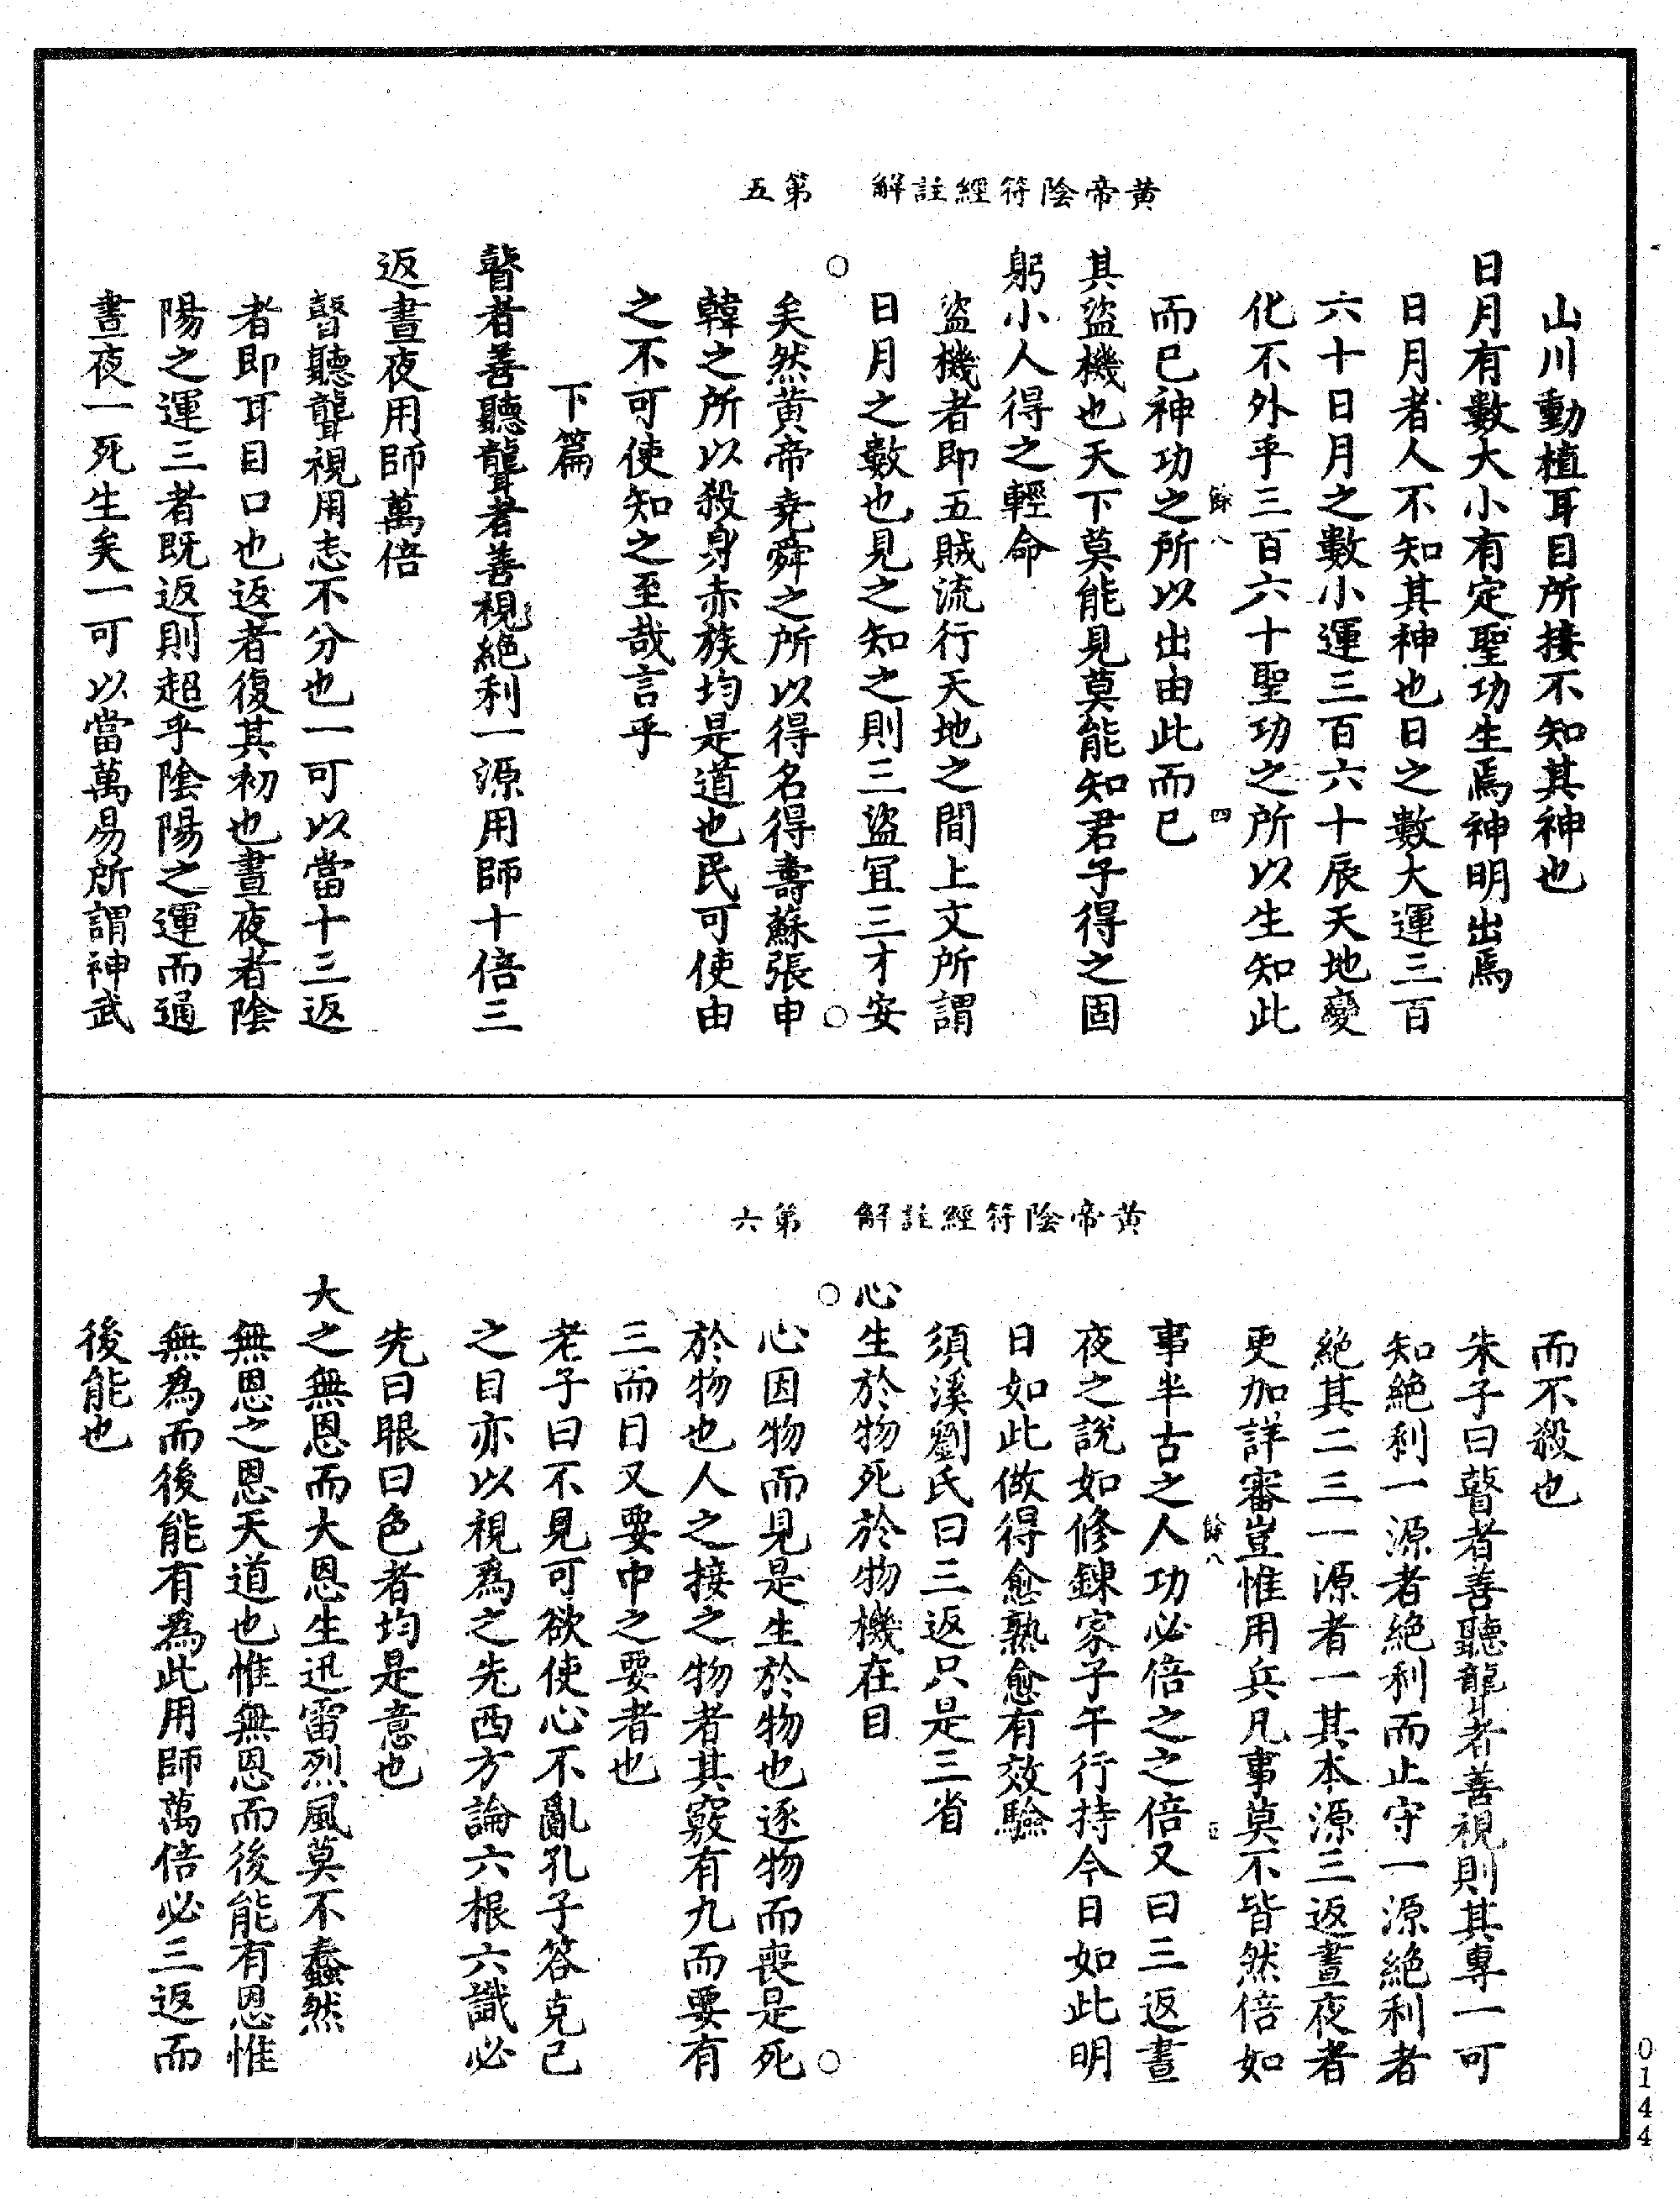 黄帝陰符經註解　第五
山川動植耳目所接不知其神也
日月有數大小有定聖功生焉神明出焉
日月者人不知其神也日之數大運三百
六十日月之數小運三百六十辰天地變
化不外乎三百六十聖功之所以生知此
餘八　四
而已神功之所以出由此而已
其盜機也天下莫能見莫能知君子得之固
躬小人得之輕命
盜機者即五賊流行天地之間上文所謂
日月之數也見之知之則三盜冝三才安
矣然黄帝堯舜之所以得名得壽蘇張申
韓之所以殺身赤族均是道也民可使由
之不可使知之至哉言乎
下篇
瞽者善聽聾者善視絶利一源用師十倍三
返晝夜用師萬倍
瞽聽聾視用志不分也一可以當十三返
者即耳目口也返者復其初也晝夜者陰
陽之運三者既返則超乎陰陽之運而通
晝夜一死生矣一可以當萬易所謂神武
黄帝陰符經註解　第六
而不殺也
朱子曰瞽者善聽聾者善視則其專一可
知絶利一源者絶利而止守一源絶利者
絶其二三一源者一其本源三返晝夜者
更加詳審豈惟用兵凡事莫不皆然倍如
餘八　五
事半古之人功必倍之之倍又曰三返晝
夜之說如修鍊家子午行持今日如此明
日如此做得愈熟愈有效驗
須溪劉氏曰三返只是三省
心生於物死於物機在目
心因物而見是生於物也逐物而喪是死
於物也人之接之物者其竅有九而要有
三而目又要中之要者也
老子曰不見可欲使心不亂孔子答克已
之目亦以視為之先西方論六根六識必
先曰眼曰色者均是意也
大之無恩而大恩生迅雷烈風莫不蠢然
無恩之恩天道也惟無恩而後能有恩惟
無為而後能有為此用師萬倍必三返而
後能也
0144